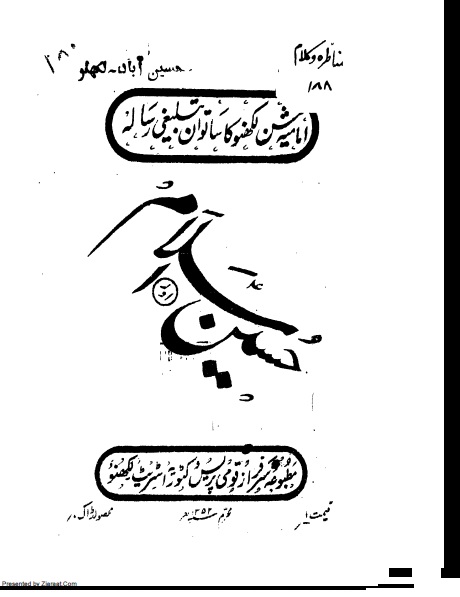 مناظرہ وکلام
۱۸۸
حسین آباد۔ لکھنؤ
امامیہ مشن لکھنؤ کا ساتواں تبلیغی رسالہ
حسین
اسلام
مطبوعہ سرفراز قومی پریس وکٹوریہ اسٹریٹ لکھنؤ
قیمت
محرم ۱۳۵۲
محصولڈاک
Presented by Ziaraat.Com